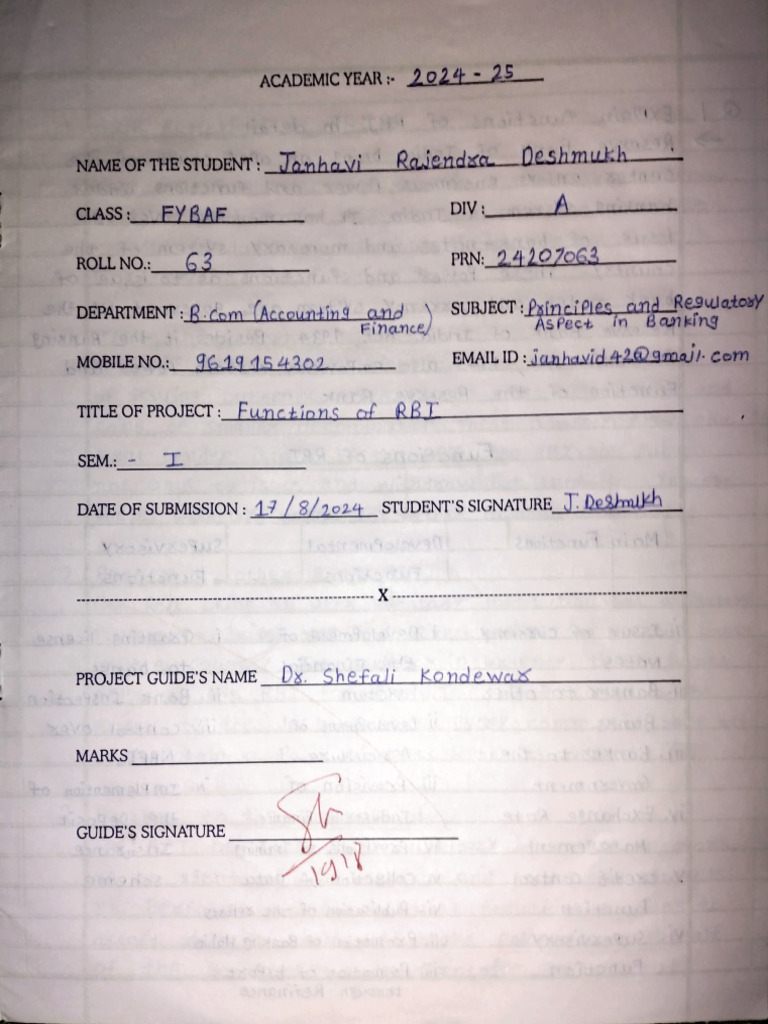 ACADEMIC YEAR :- 2024 - 25
NAME OF THE STUDENT : Janhavi Rajendra Deshmukh
CLASS : FYBAF DIV : A
ROLL NO.: 63 PRN: 24207063
DEPARTMENT : B.com (Accounting and Finance) SUBJECT : Principles and Regulatory Aspect in Banking
MOBILE NO.: 9619154302 EMAIL ID : janhavid42@gmail.com
TITLE OF PROJECT : Functions of RBI
SEM.: - I
DATE OF SUBMISSION : 17/8/2024 STUDENT'S SIGNATURE J. Deshmukh
X
PROJECT GUIDE'S NAME Dr. Shefali Kondewar
MARKS
GUIDE'S SIGNATURE
19/8